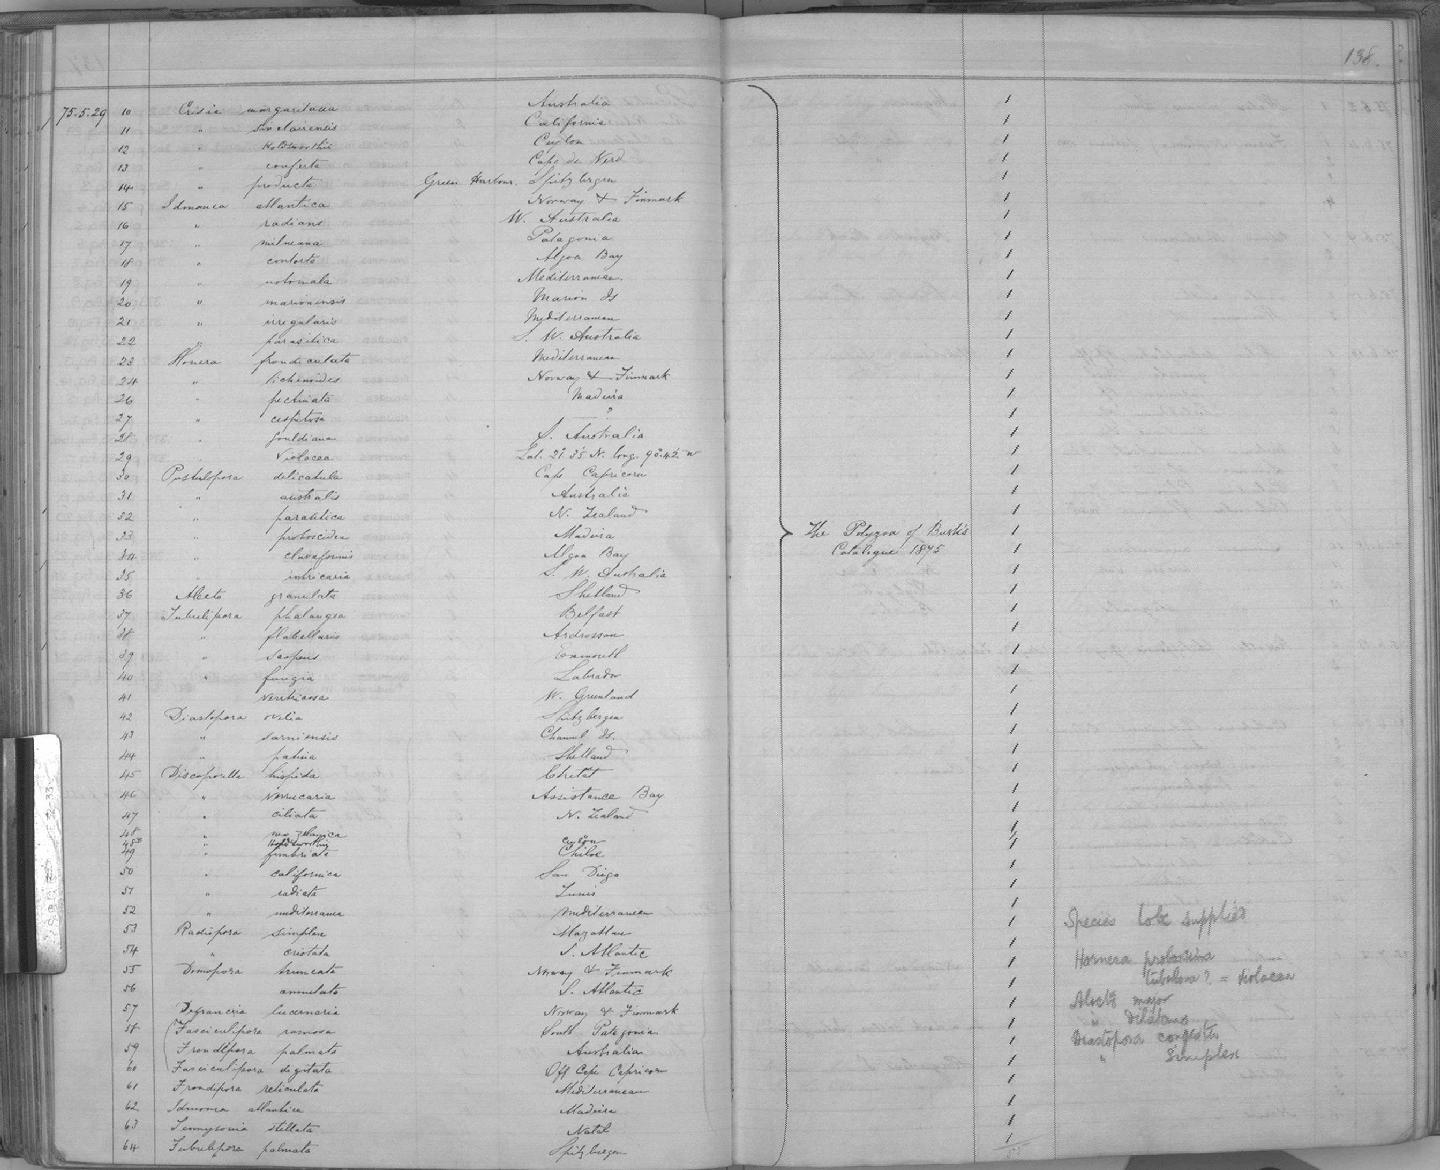 138.
75.5.29 10 Crisia margaritacea Australia 1
11 " sinclairensis California 1
12 " Holdsworthii Ceylon 1
13 " conferta Cape de Verd 1
14 " producta Green Harbour. Spitzbergen 1
15 Idmonea atlantica Norway & Finmark 1
16 " radians W. Australia 1
17 " milneana Patagonia 1
18 " contorta Algoa Bay 1
19 " notomala Mediterranean 1
20 " marionensis Marion Is 1
21 " irregularis Mediterranean 1
22 " parasitica S. W. Australia 1
23 Hornera frondiculata Mediterranean 1
24 " lichenoides Norway & Finmark 1
26 " pectinata Madeira 1
27 " cespitosa ? 1
28 " gouldiana S. Australia 1
29 " violacea 1
30 Pustulopora delicatula Cape Capricorn 1
31 " australis Australia 1
32 " parasitica N. Zealand 1
33 " proboscidea Madeira 1
34 " clavaeformis Algoa Bay 1
35 " intricaria S. W. Australia 1
The Polyzoa of Busk's
Catalogue 1875
36 Alecto granulata Shetland 1
37 Tubulipora phalangea Belfast 1
38 " flabellaris Ardrossan 1
39 " serpens Exmouth 1
40 " fungia Labrador 1
41 ventricosa W. Greenland 1
42 Diastopora obelia Spitzbergen 1
43 " sarniensis Channel Is. 1
44 " patina Shetland 1
45 Discoporella hispida Etretat 1
46 " verrucaria Assistance Bay 1
47 " ciliata N. Zealand 1
48 " nov. zelanica 1
" Holdsworthii Ceylon 1
49 " fimbriata Chiloe 1
50 " californica San Diego 1
51 " radiata Tunis 1
52 " mediterranea Mediterranean 1
53 Radiopora simplex Mazatlan 1
54 " cristata S. Atlantic 1
55 Domopora truncata Norway & Finmark 1
56 annulata S. Atlantic 1
57 Defrancia lucernaria Norway & Finmark 1
58 Fasciculipora ramosa South Patagonia 1
59 Frondipora palmata Australia 1
60 Fasciculipora digitata Off Cape Capricorn 1
61 Frondipora reticulata Mediterranean 1
62 Idmonea atlantica Madeira 1
63 Tennysonia stellata Natal 1
64 Tubulipora palmata Spitzbergen 1
Species to be supplied
Hornera
tubulosa ? = violacea
Alecto major
" dilatans
Diastopora conferta
" simplex